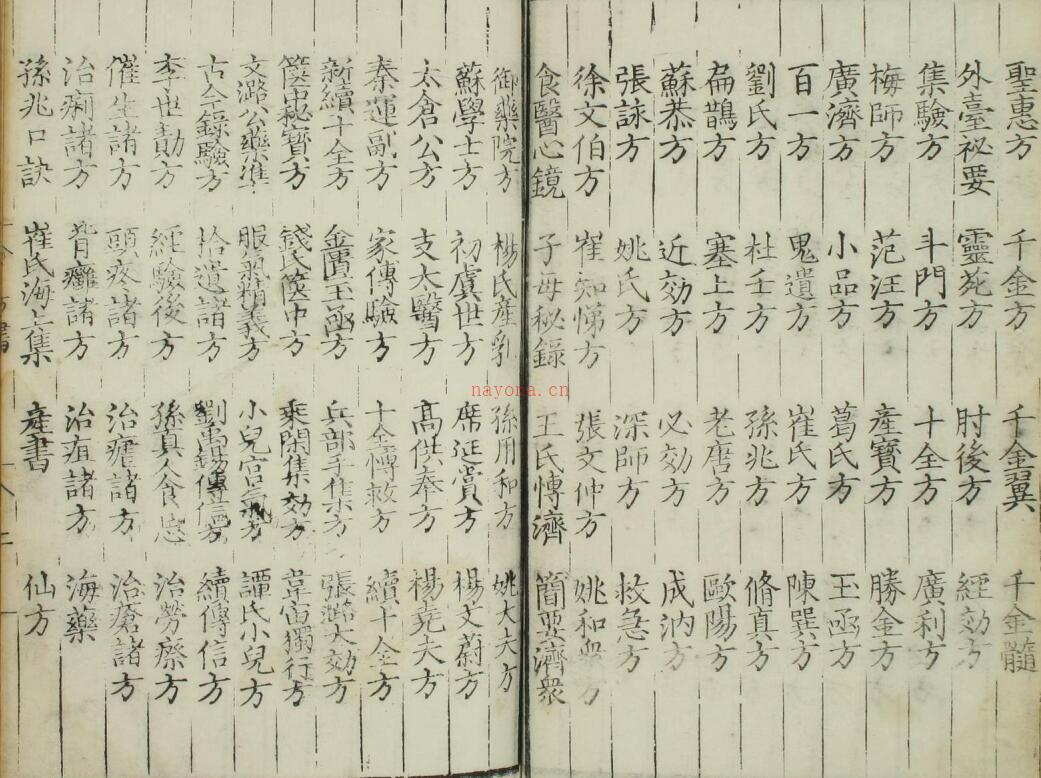 聖惠方 千金方 千金翼 千金髓
外臺祕要 靈苑方 肘後方 經効方
集驗方 斗門方 十全方 廣利方
梅師方 范汪方 產寶方 勝金方
廣濟方 小品方 葛氏方 玉函方
百一方 鬼遺方 崔氏方 陳巽方
劉氏方 杜壬方 孫兆方 脩真方
扁鵲方 塞上方 老唐方 歐陽方
蘇恭方 近効方 必効方 成汭方
張詠方 姚氏方 深師方 救急方
徐文伯方 崔知悌方 張文仲方 姚和衆方
食醫心鏡 子母秘錄 王氏愽濟 簡要濟衆
御藥院方 楊氏產乳 孫用和方 姚大夫方
蘇學士方 初虞世方 席延賞方 楊文蔚方
太倉公方 支太醫方 高供奉方 楊堯夫方
秦運副方 家傳驗方 十全愽救方 續十全方
新續十全方 金匱玉函方 兵部手集方 張潞大効方
篋中祕寶方 錢氏篋中方 乘閑集効方 韋宙獨行方
文潞公藥準 服氣精義方 小兒宮氣方 譚氏小兒方
古今錄驗方 拾遺諸方 劉禹錫傳信方 續傳信方
李世勣方 經驗後方 孫真人食忌 治勞瘵方
催生諸方 頭疼諸方 治瘧諸方 治瘡諸方
治痢諸方 背癰諸方 治疽諸方 海藥
孫兆口訣 崔氏海上集 產書 仙方
nayona.cn